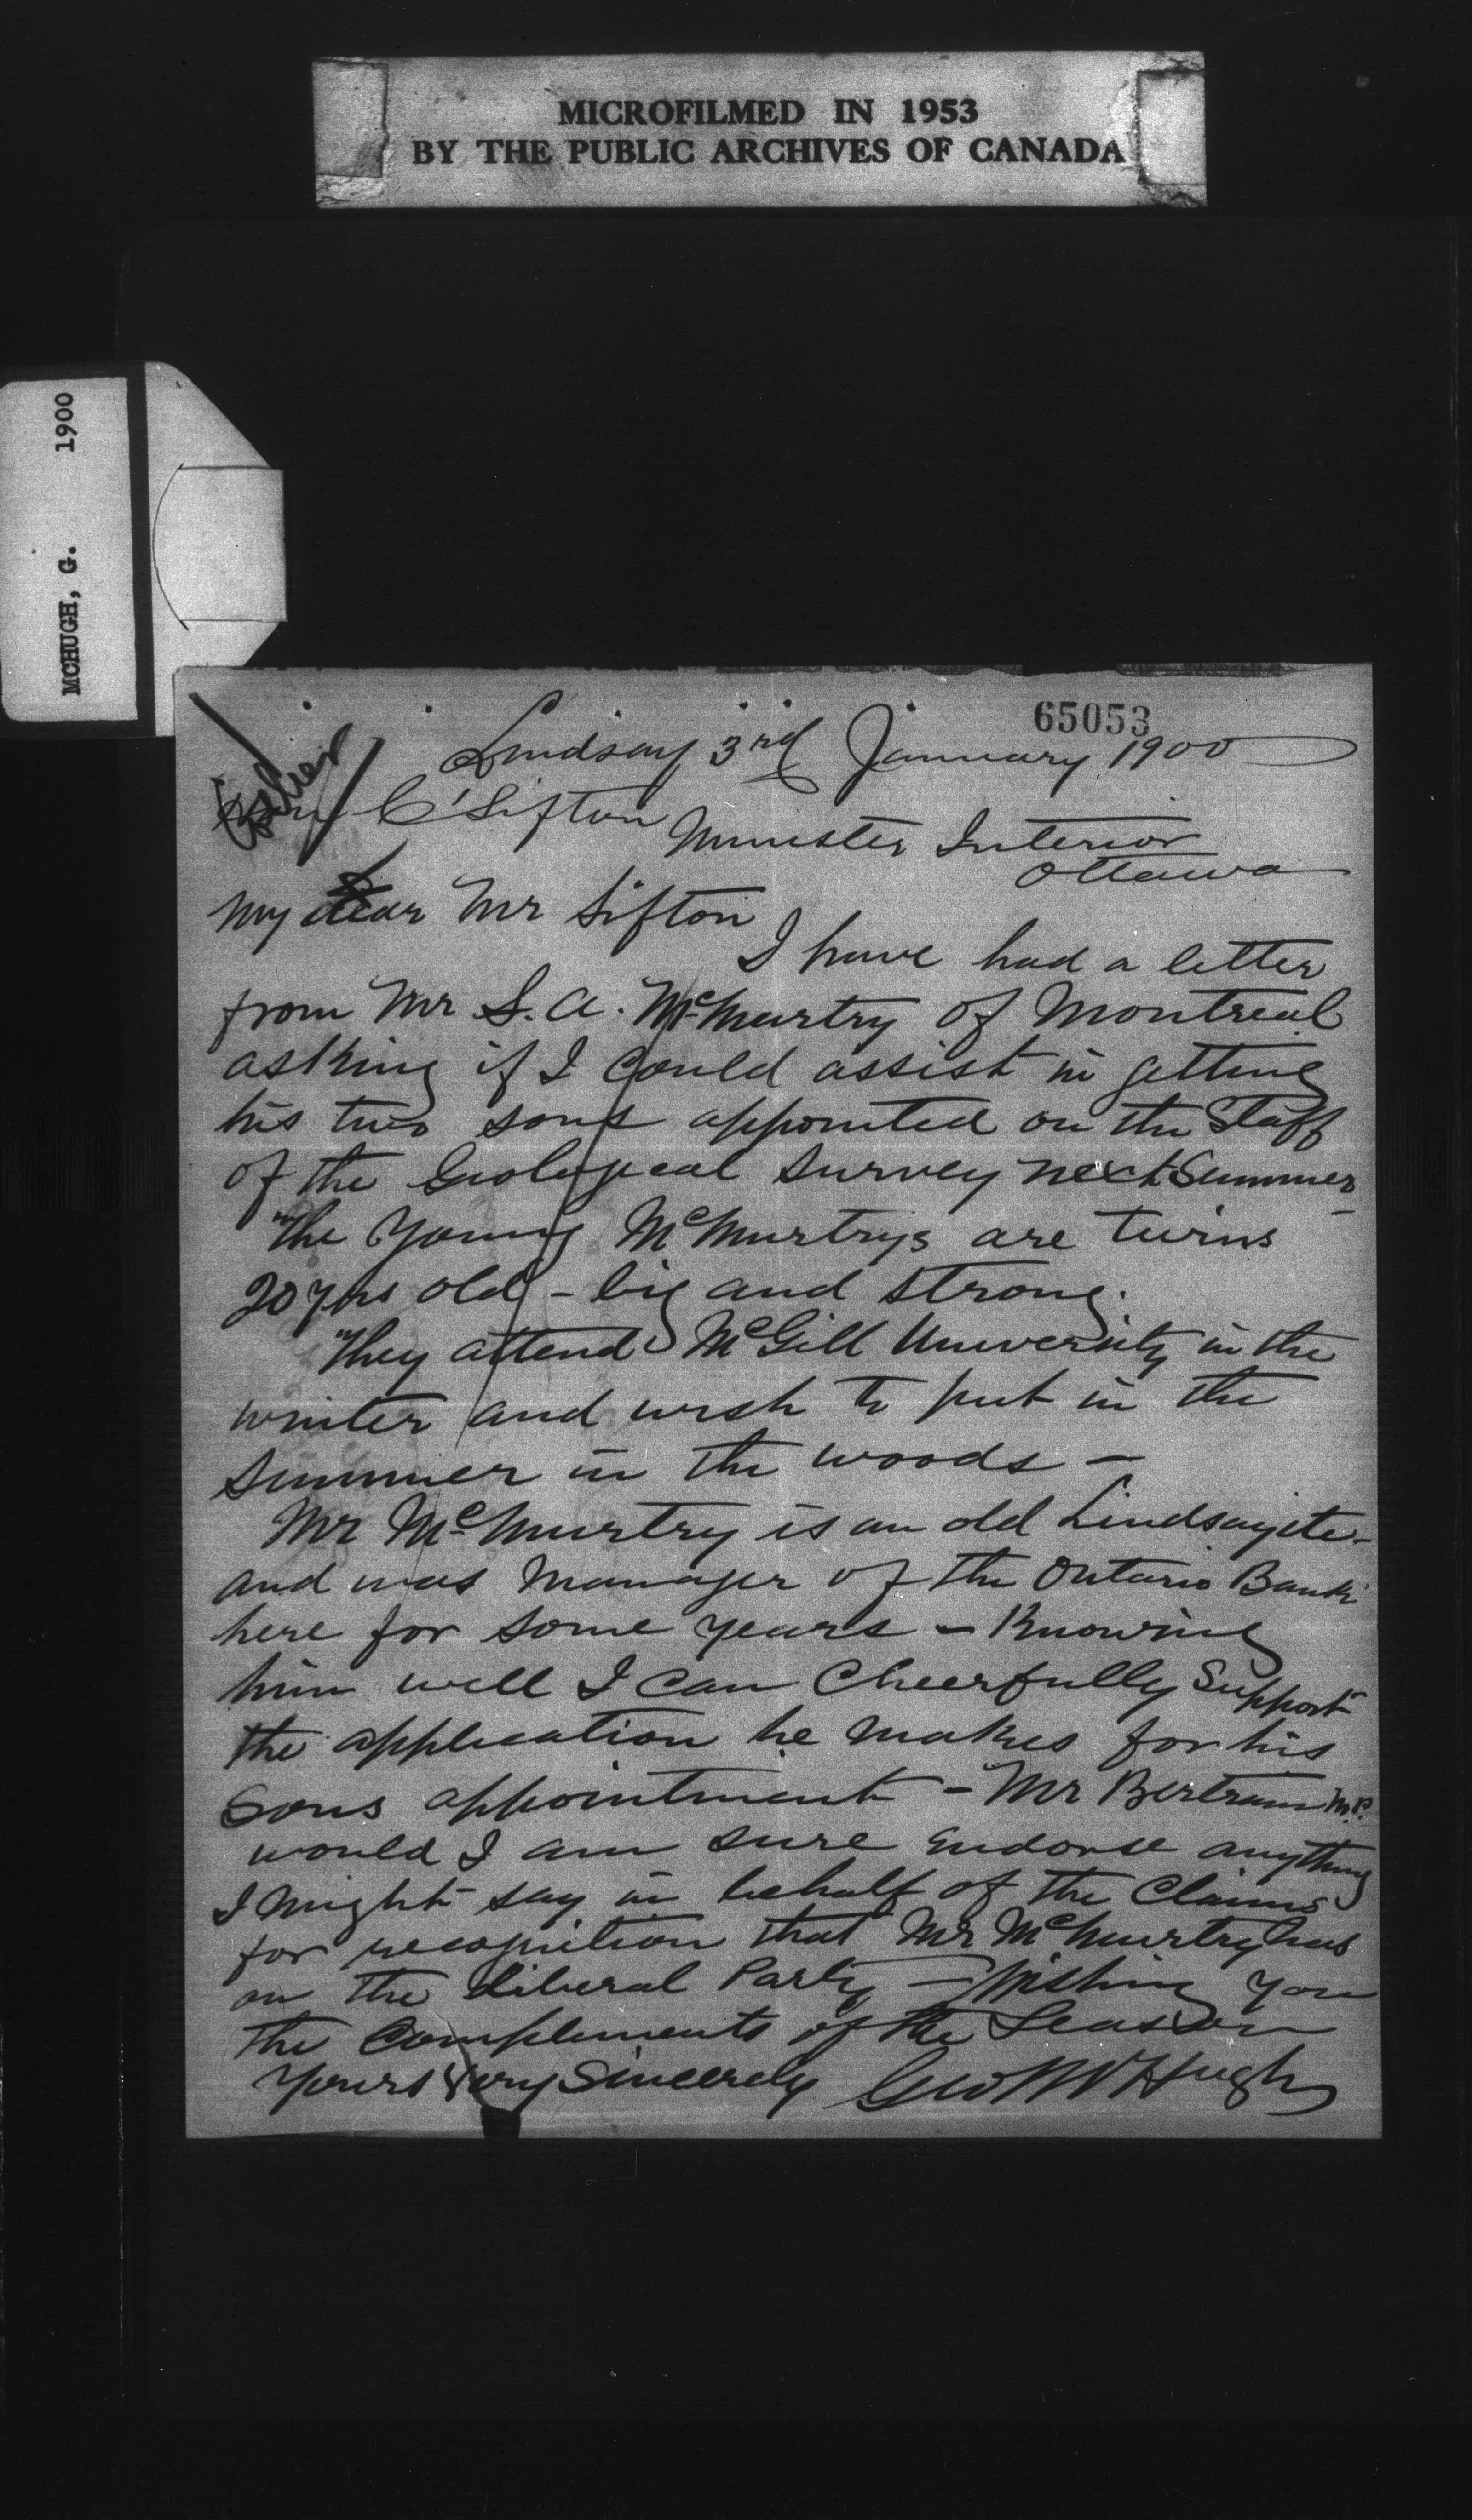 MICROFILMED IN 1953
BY THE PUBLIC ARCHIVES OF CANADA
MCHUGH, G. 1900
65053
Lindsay 3rd January 1900
Hon C Sifton
Minister Interior
Ottawa
My dear Mr Sifton
I have had a letter
from Mr S. A. McMurtry of Montreal
asking if I could assist in getting
his two sons appointed on the Staff
of the Geological Survey next Summer -
The Young McMurtrys are twins
20 yrs old - big and strong.
They attend McGill University in the
winter and wish to put in the
summer in the woods -
Mr McMurtry is an old Lindsayite -
and was Manager of the Ontario Bank
here for some years - Knowing
him well I can Cheerfully Support
the application he makes for his
Sons appointment - Mr Bertram M.P.
would I am sure endorse anything
I might say in behalf of the Claims
for recognition that Mr McMurtry has
on the Liberal Party - Wishing you
the Compliments of the Season
Yours Very Sincerely Geo McHugh